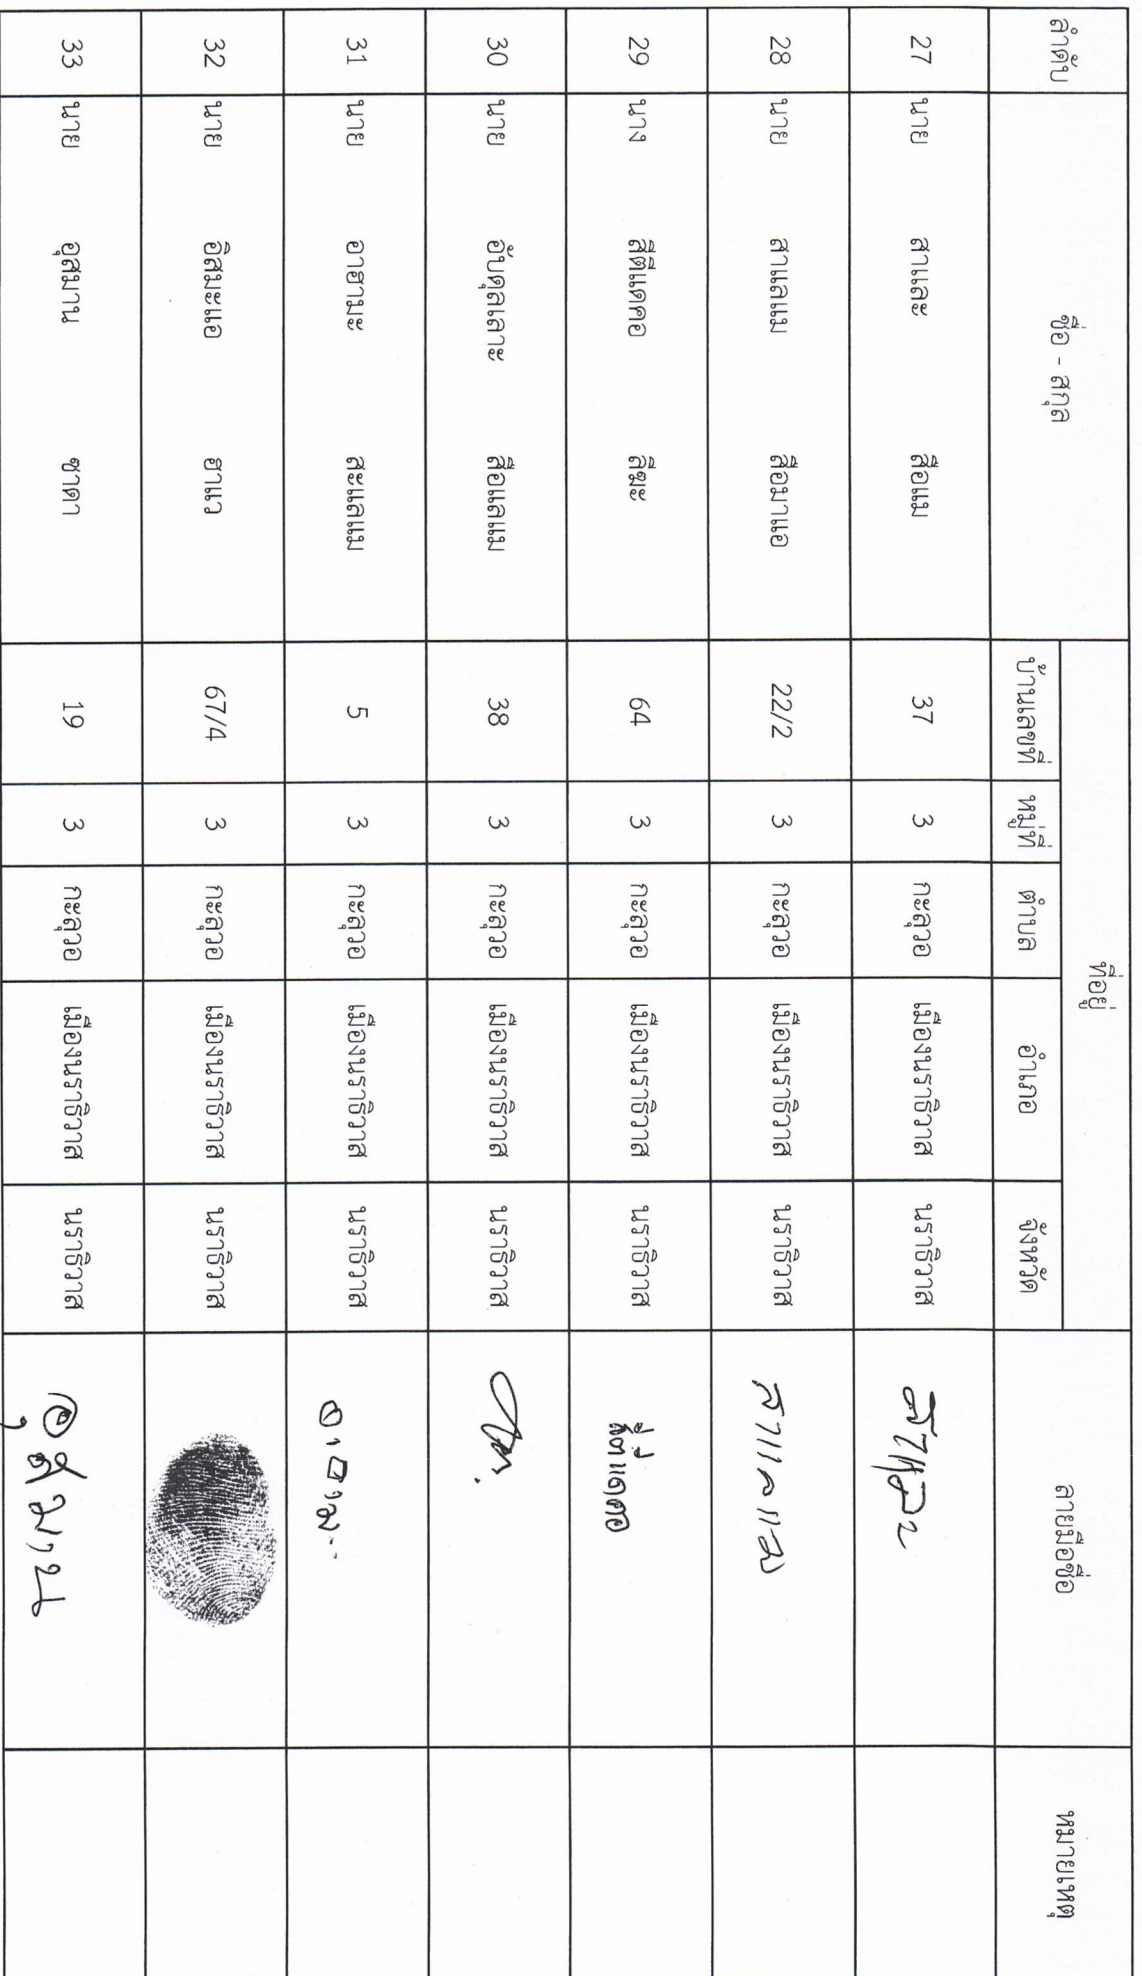 ลำดับ ชื่อ - สกุล ที่อยู่ ลายมือชื่อ หมายเหตุ
บ้านเลขที่ หมู่ที่ ตำบล อำเภอ จังหวัด
27 นาย สาและ สือแม 37 3 กะลุวอ เมืองนราธิวาส นราธิวาส
28 นาย สาแลแม สือมาแอ 22/2 3 กะลุวอ เมืองนราธิวาส นราธิวาส สาแลแม
29 นาง สีตีแดคอ ลีฆะ 64 3 กะลุวอ เมืองนราธิวาส นราธิวาส
30 นาย อับดุลเลาะ สือแลแม 38 3 กะลุวอ เมืองนราธิวาส นราธิวาส
31 นาย อาฮามะ สะแลแม 5 3 กะลุวอ เมืองนราธิวาส นราธิวาส อาฮามะ
32 นาย อิสมะแอ ฮาแว 67/4 3 กะลุวอ เมืองนราธิวาส นราธิวาส
33 นาย อุสมาน ซาดา 19 3 กะลุวอ เมืองนราธิวาส นราธิวาส อุสมาน